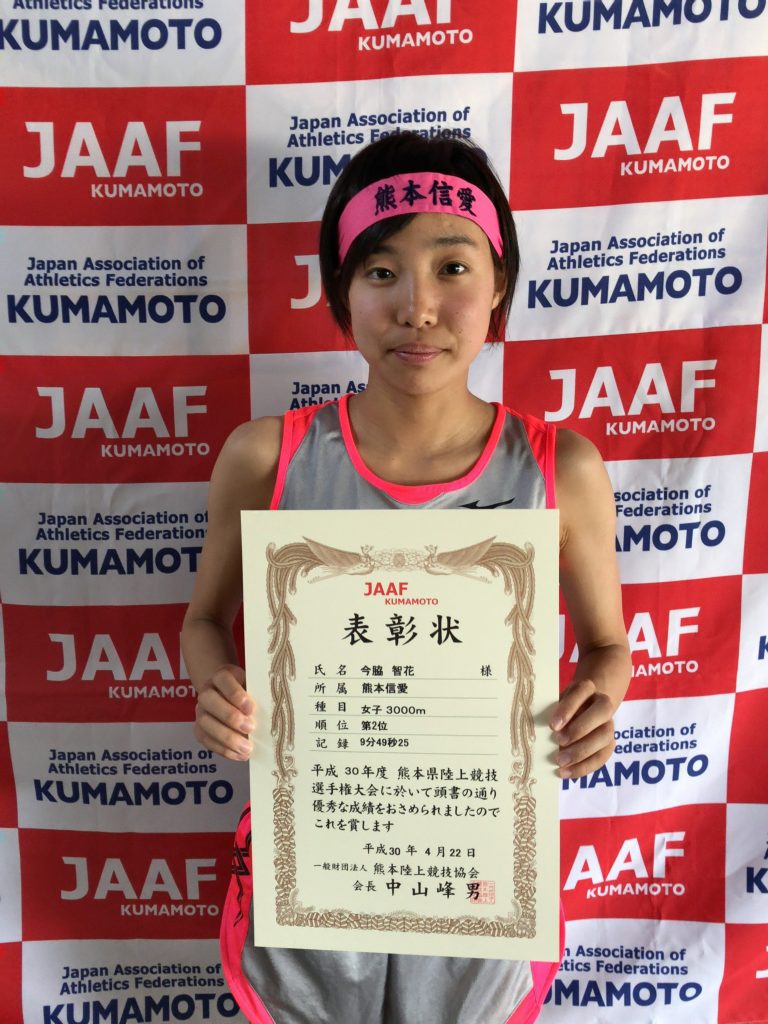 KUMAMOTO
JAAF
KUMAMOTO
KUMAMOTO
JAAF
KUMAMOTO
Japan Association of
Athletics Federations
KUMAMOTO
JAAF
KUMAMOTO
熊本信愛
Japan Association of
Athletics Federations
KUMAMOTO
Japan Association of
Athletics Federations
KUMAMOTO
JAAF
KUMAMOTO
JAAF
KUMAMOTO
Japan Association of
Athletics Federations
KUMAMOTO
JAAF
KUMAMOTO
表彰状
氏名 今脇 智花 様
所属 熊本信愛
種目 女子3000m
順位 第2位
記録 9分49秒25
平成 30年度 熊本県陸上競技
選手権大会に於いて頭書の通り
優秀な成績をおさめられましたので
これを賞します
平成30 年 4月22日
一般財団法人 熊本陸上競技協会
会長 中山峰男
JAAF
KUMAMOTO
KUMAMOTO
Japan Association of
Athletics Federations
KUMAMOTO
KUMAMOTO
JAAF
KUMAMOTO
JAAF
KUMAMOTO
Japan Association of
Athletics Federations
KUMAMOTO
Japan Association of
Athletics Federations
KUMAMOTO